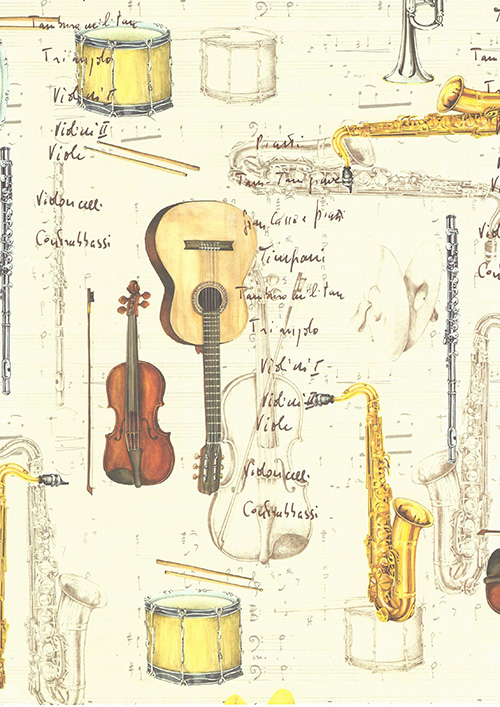 Tamburo militare
Triangolo
Violini I
Violini II
Viole
Violoncelli
Contrabbassi
Piatti
Tam-Tam grave
Gran Cassa e piatti
Timpani
Tamburo militare
Triangolo
Violini I
Violini II
Viole
Violoncelli
Contrabbassi
Ta
T
Vi
Co